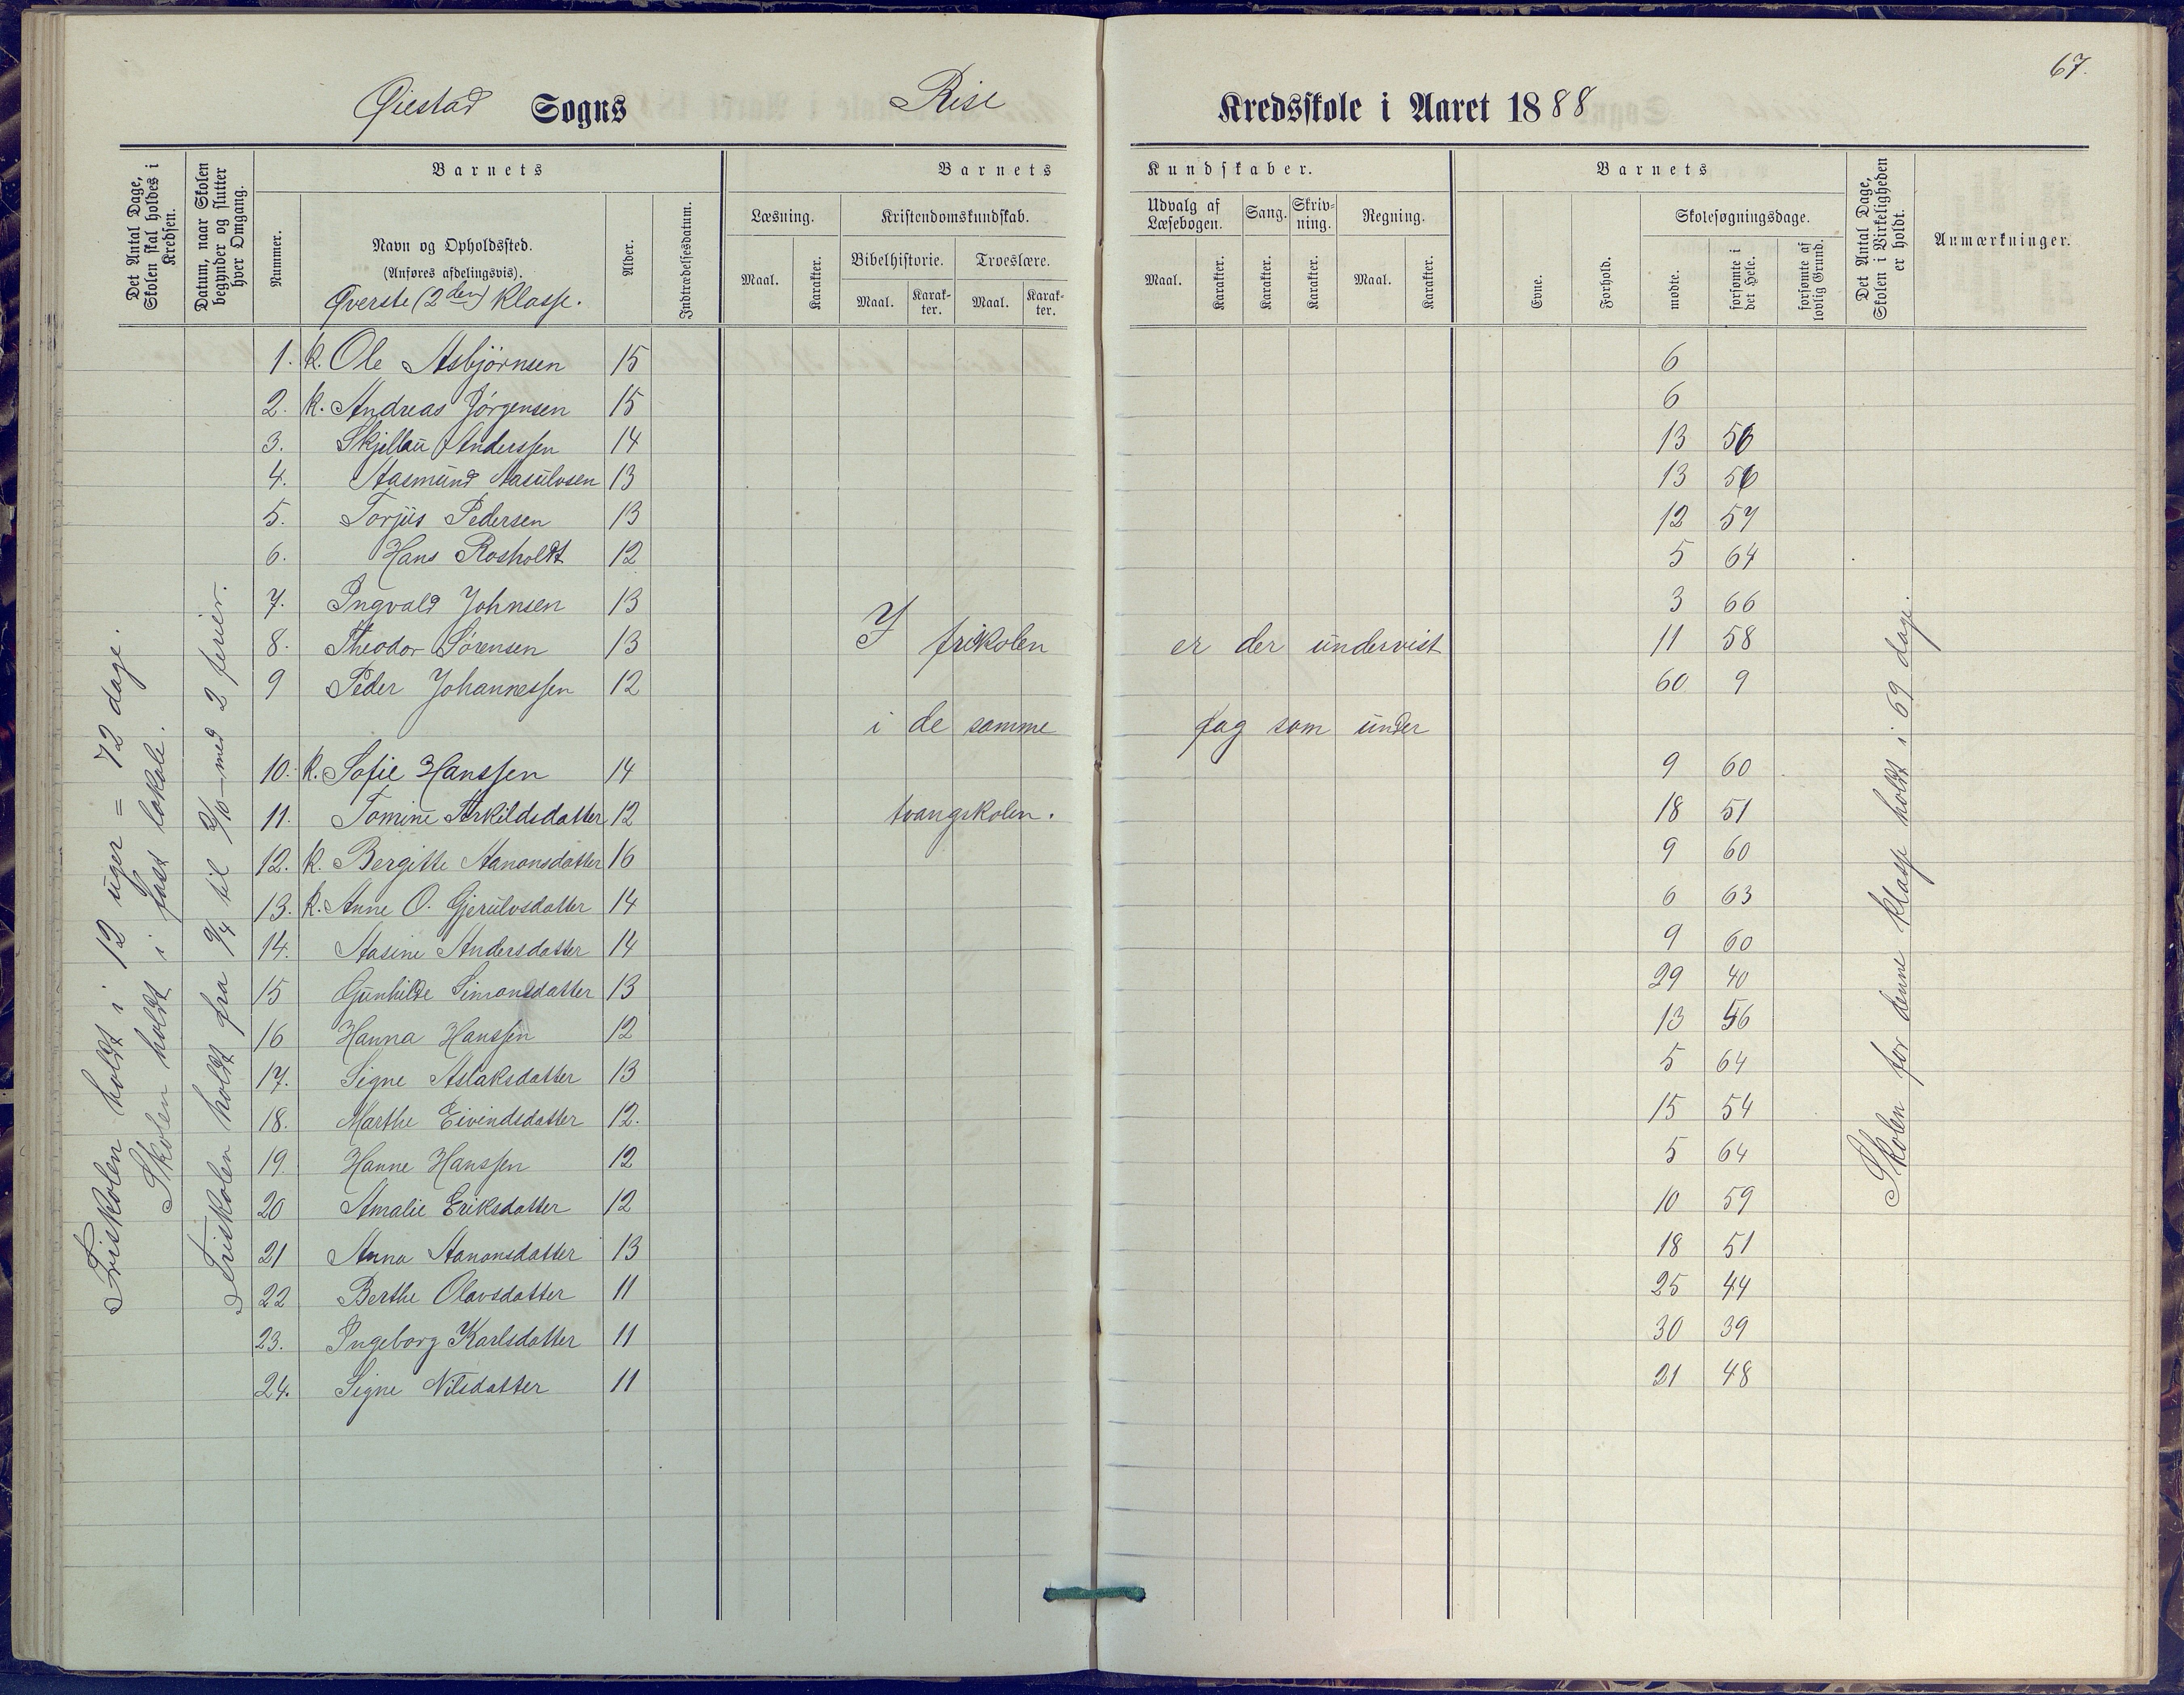 67.
Øiestad Sogns Rise Kredsskole i Aaret 1888
Det Antal Dage, Skolen skal holdes i Kredsen.
Datum, naar Skolen begynder og slutter hver Omgang.
Barnets
Nummer.
Navn og Opholdssted.
(Anføres afdelingsvis).
Øverste (2den) klasse.
Alder.
Indtrædelsesdatum.
Barnets Kundskaber.
Læsning.
Maal. Karakter.
Kristendomskundskab.
Bibelhistorie. Troeslære.
Maal. Karakter. Maal. Karakter.
Udvalg af Læsebogen.
Maal. Karakter.
Sang.
Karakter.
Skrivning.
Karakter.
Regning.
Maal. Karakter.
Barnets
Evne.
Forhold.
Skolesøgningsdage.
mødte.
forsømte i det Hele.
forsømte af lovlig Grund.
Det Antal Dage, Skolen i Virkeligheden er holdt.
Anmærkninger.
1. k. Ole Asbjørnsen 15 6
2. k. Andreas Jörgensen 15 6
3. Skjellau Anderssen 14 13 56
4. Aasmund Aasulvsen 13 13 56
5. Torjus Pedersen 13 12 57
6. Hans Rosholdt 12 5 64
7. Ingvald Johnsen 13 3 66
8. Theodor Sørensen 13 11 58
9 Peder Johannessen 12 60 9
10. k. Sofie Hanssen 14 9 60
11. Tomine Terkildsdatter 12 18 51
12. k. Bergitte Aanonsdatter 16 9 60
13. k. Anne O. Gjerulvsdatter 14 6 63
14. Aasine Andersdatter 14 9 60
15 Gunhilde Simonsdatter 13 29 40
16 Hanna Hanssen 12 13 56
17. Signe Aslaksdatter 13 5 64
18. Marthe Eivindsdatter 12. 15 54
19. Hanne Hanssen 12 5 64
20 Amalie Eriksdatter 12 10 59
21 Anna Aanonsdatter 13 18 51
22 Berthe Olavsdatter 11 25 44
23. Ingeborg Karlsdatter 11 30 39
24. Signe Nilsdatter 11 21 48
I friskolen er der undervist
i de samme fag som under
tvangskolen.
Friskolen holdt i 12 uger = 72 dage.
Skolen holdt i fast lokale.
Friskolen holdt fra 9/4 til 2/10 – med 2 ferier.
Skolen for denne klasse holdt i 69 dage.